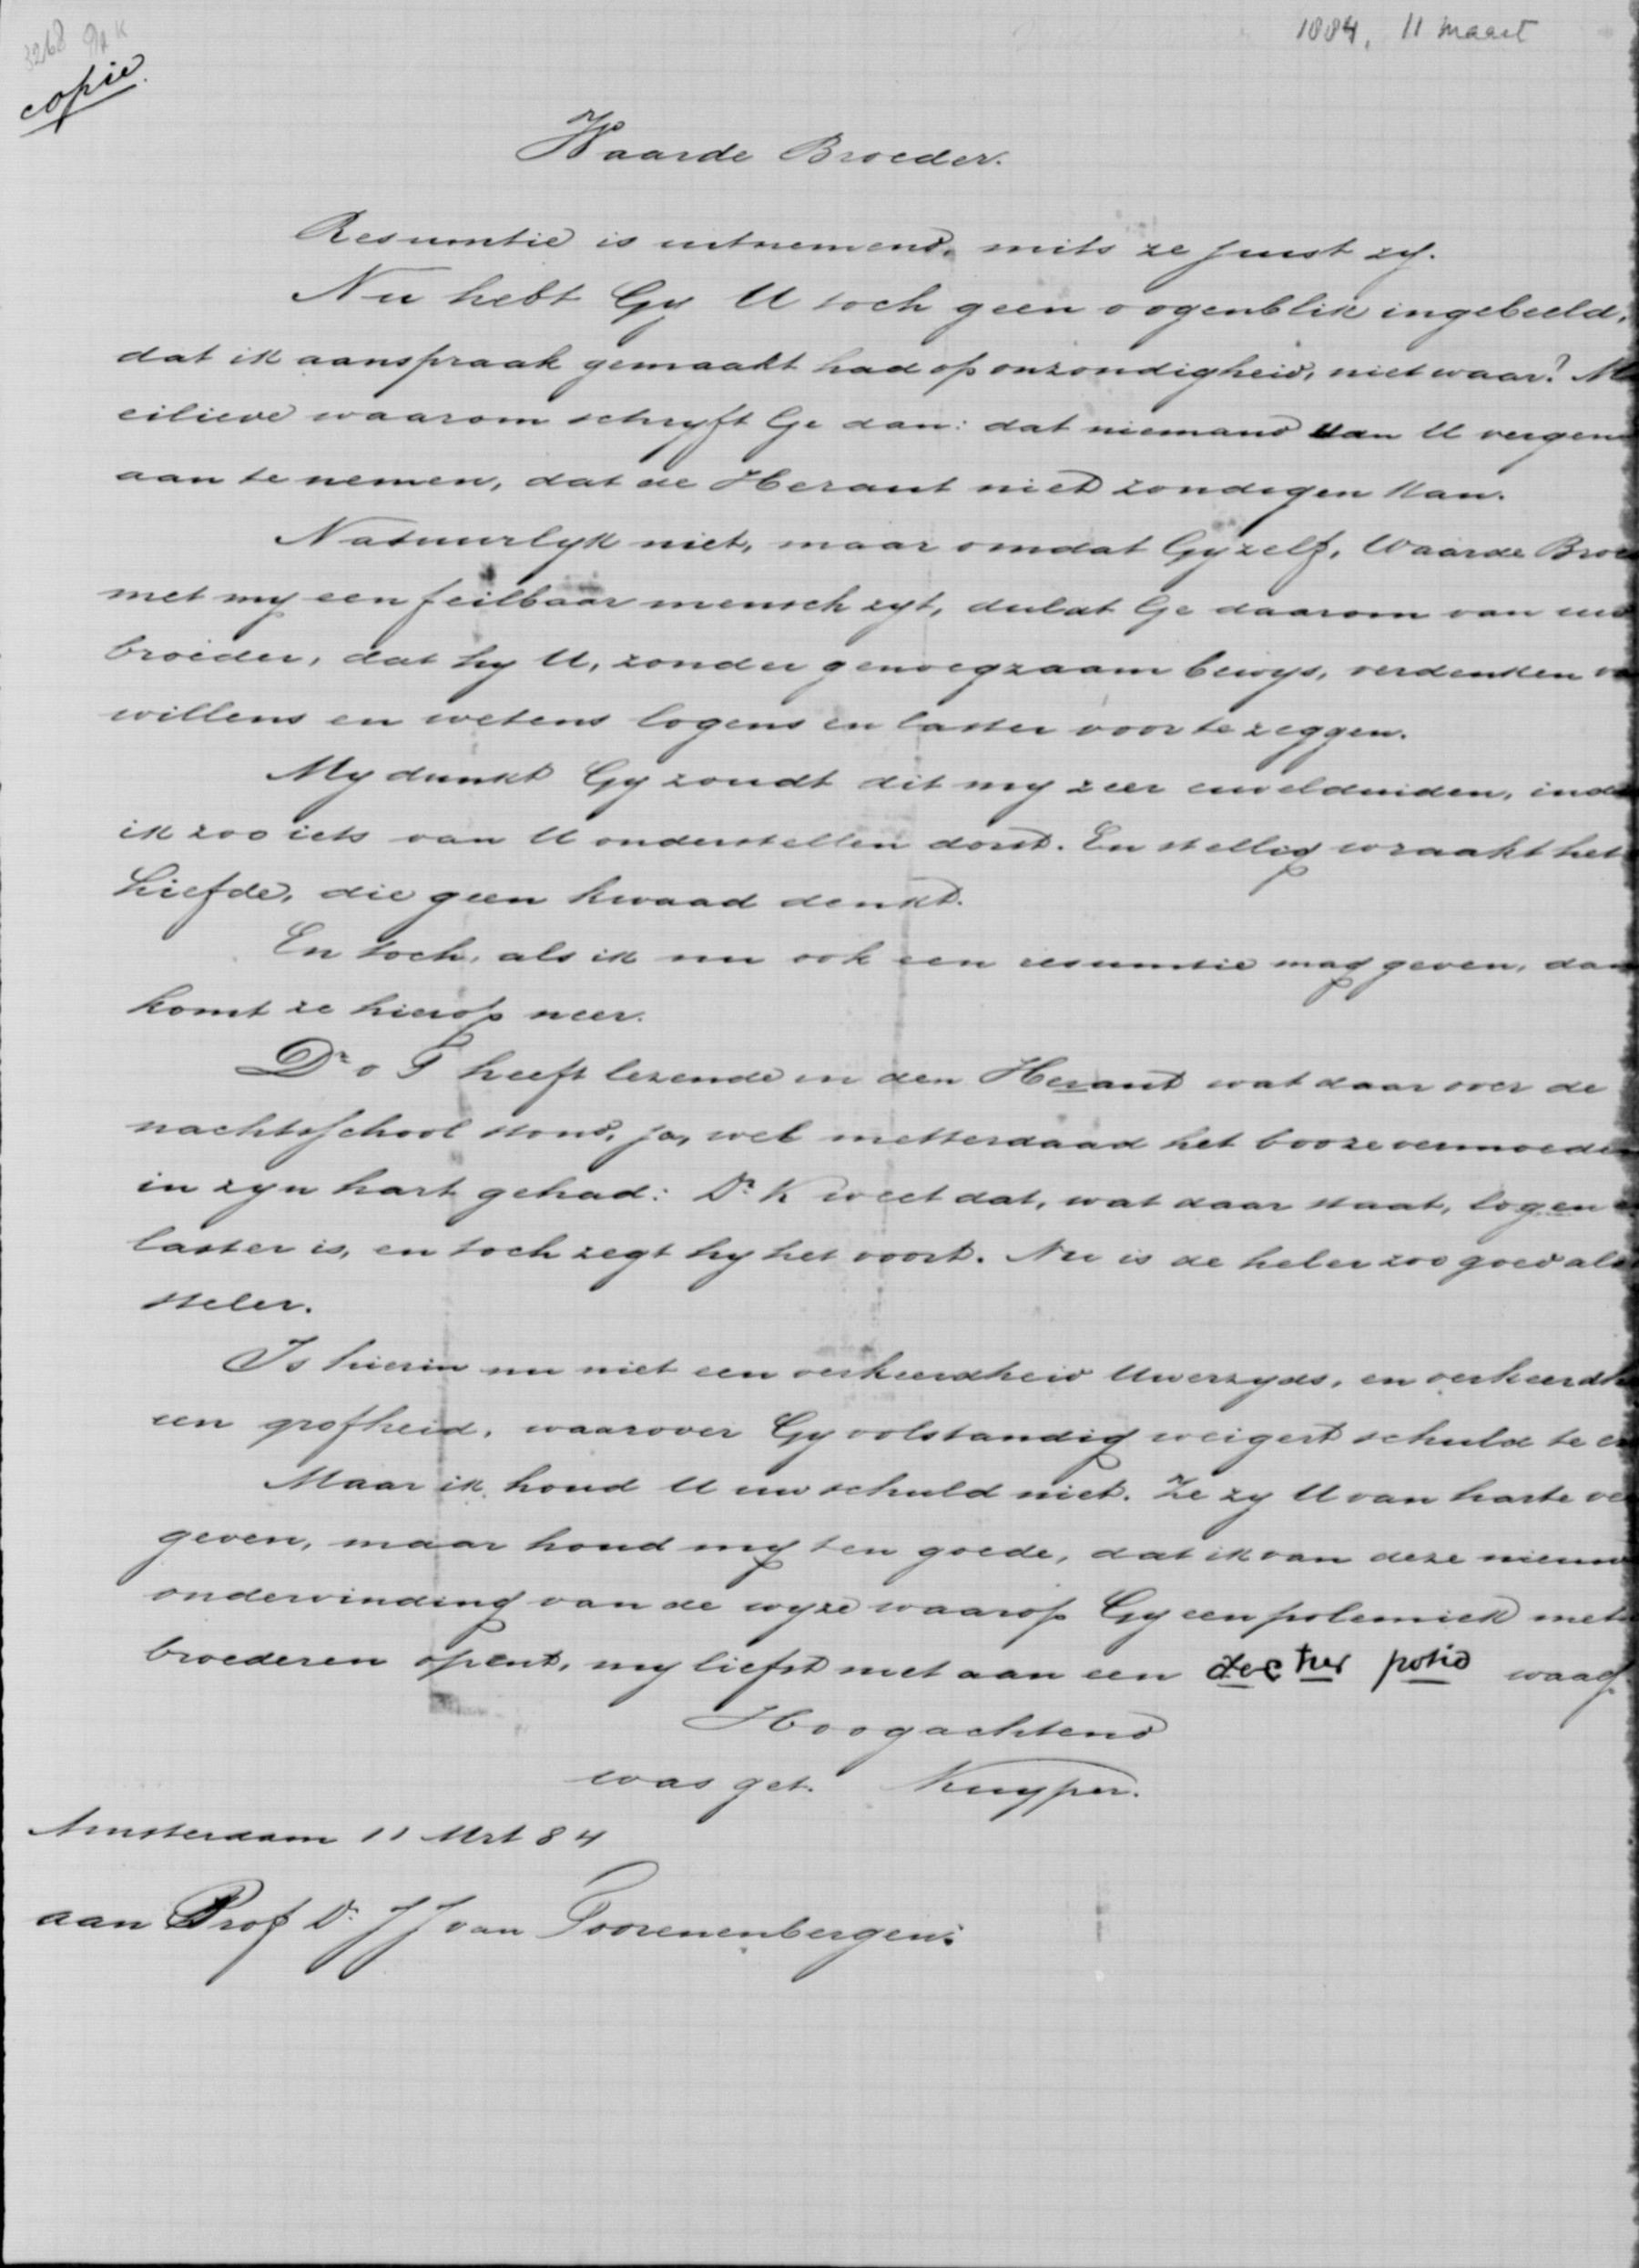 3268
1884, 11 maart
copie.
Waarde Broeder.
Resumtie is uitnemend, mits ze juist zy.
Nu hebt Gy U toch geen oogenblik ingebeeld,
dat ik aanspraak gemaakt had op onzondigheid, niet waar? M
eilieve waarom schryft Ge dan: dat niemand kan U vergen
aan te nemen, dat de Heraut niet zondigen kan.
Natuurlyk niet, maar omdat Gy zelf, Waarde Broe
met my een feilbaar mensch zyt, duldt Ge daarom van uw
broeder, dat hy U, zonder genoegzaam bewys, verdenken
willens en wetens logens en laster voor te zeggen.
My dunkt Gy zoudt dit my zeer euvelduiden, inde
ik zoo iets van U onderstellen dorst. En stellig wraakt het
Liefde, die geen kwaad denkt.
En toch, als ik nu ook een resumtie mag geven, dan
komt ze hierop neer.
Dr. v T heeft lezende in den Heraut wat daar over de
nachtschool stond, ja, wel metterdaad het booze vermoede
in zyn hart gehad: Dr. K weet dat, wat daar staat, logen e
laster is, en toch zegt hy het voort. Nu is de heler zoo goed als
steler.
Is hierin nu niet een verkeerdheid Uwerzyds, en verkeerdh
een grofheid, waarover Gy volstandig weigert schuld te
Maar ik houd U uw schuld niet. Ze zy U van harte ve
geven, maar houd my ten goede, dat ik van deze nieuw
ondervinding van de wyze waarop Gy een polemiek met
broederen opent, my liefst niet aan een waag.
Hoogachtend
was get. Kuyper.
Amsterdam 11 Mrt 84
aan Prof Dr. J J van Toorenenbergen.